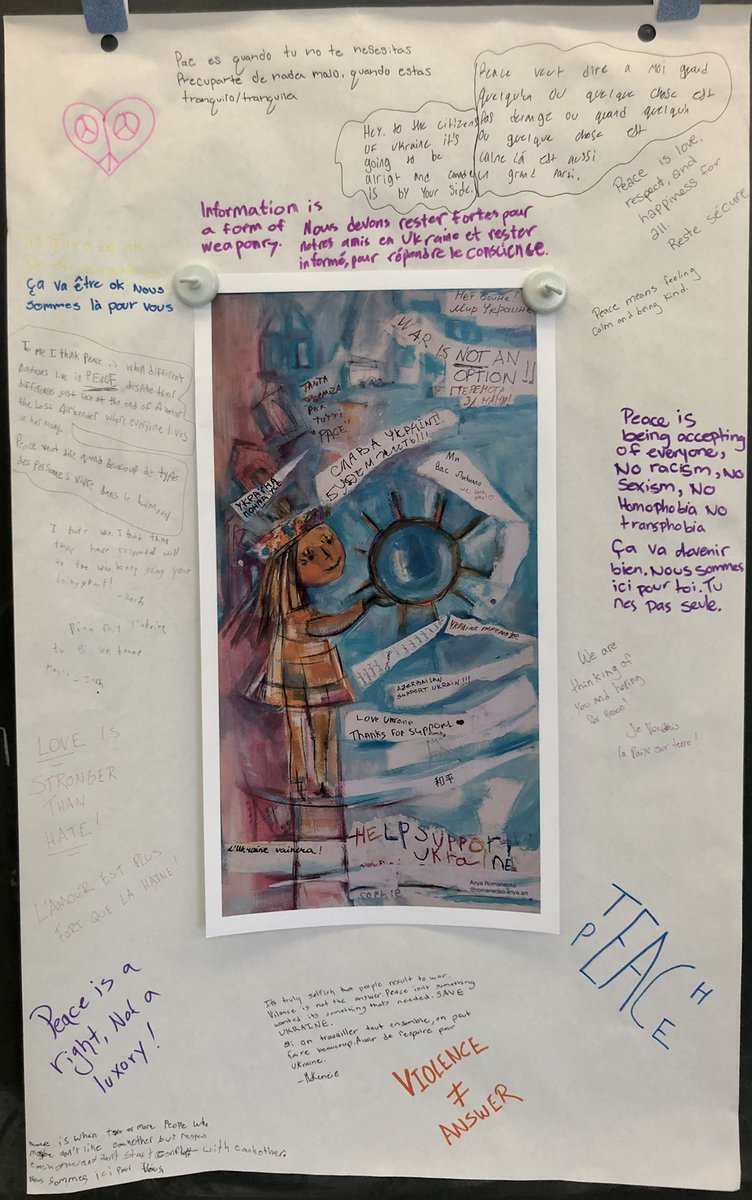 Pac es quando tu no te nesesitas
Precuparte de nada malo, quando estas
tranquilo/tranquila
Peace veut dire a moi quand
quelqu'un ou quelque chose est
pas derange ou quand quelqu'un
ou quelque chose est
calme là est aussi
un grand parti.
Hey. to the citizens
of Ukraine it's
going to be
alright and canada
is by your side.
Peace is love,
respect, and
happiness for
all.
Reste secure
Information is
a form of
weaponry.
Nous devons rester fortes pour
notres amis en Ukraine et rester
informé, pour répandre le conscience.
Its gonna be ok
Ça va être ok Nous
sommes là pour vous
Peace means feeling
calm and being kind.
To me I think Peace is when different
Nations live in PEACE despite their
difference just like at the end of Avatar
the Last Airbender where everyone lives
in harmony.
Peace veut dire quand beaucoup de types
des personnes vivre dans le harmony.
I hate war. I think that
they have responded well
to the war keep going your
doing great!
- Zach
tu es un bonne
- Zach
Peace is
being accepting
of everyone,
No racism, No
sexism, No
Homophobia No
transphobia
Ça va devenir
bien. Nous sommes
ici pour toi. Tu
nes pas seule.
We are
thinking of
you and hoping
for Peace!
Je voudrais
la paix sur terre!
LOVE IS
STRONGER
THAN
HATE!
L'AMOUR EST PLUS
FORT QUE LA HAINE!
Нет войне!
Мир Украине
WAR IS NOT AN
OPTION!!
ПЕРЕМОГА
ЗА НАМИ!
TANTA
PER
TUTTI
"PACE"
СЛАВА УКРАЇНІ!
УКРАЇНА
ПОНАД УСЕ
Ми
Вас Любимо
we love
you!
УКРАЇНА ПЕРЕМОЖЕ
AZERBAIJAN
SUPPORT UKRAIN!!!
Love Ukraine
Thanks for support
和平
L'Ukraine vaincra!
HELP SUPPORT
UKRAINE
sophie
Anya Romanenko
@romanenko.anya.art
TEACH
PEACE
Peace is a
right, Not a
luxory!
Its truly selfish that people result to war.
Vilence is not the answer. Peace isnt something
wanted its something thats needed. SAVE
UKRAINE.
si on travailler tout ensemble, on peut
faire beaucoup. Avoir de l'espoire pour
Ukraine.
-McKenzie
VIOLENCE
≠
ANSWER
Peace is when two or more people who
maybe don't like eachother but respect
eachother and dont start conflict with eachother.
Nous sommes ici pour vous